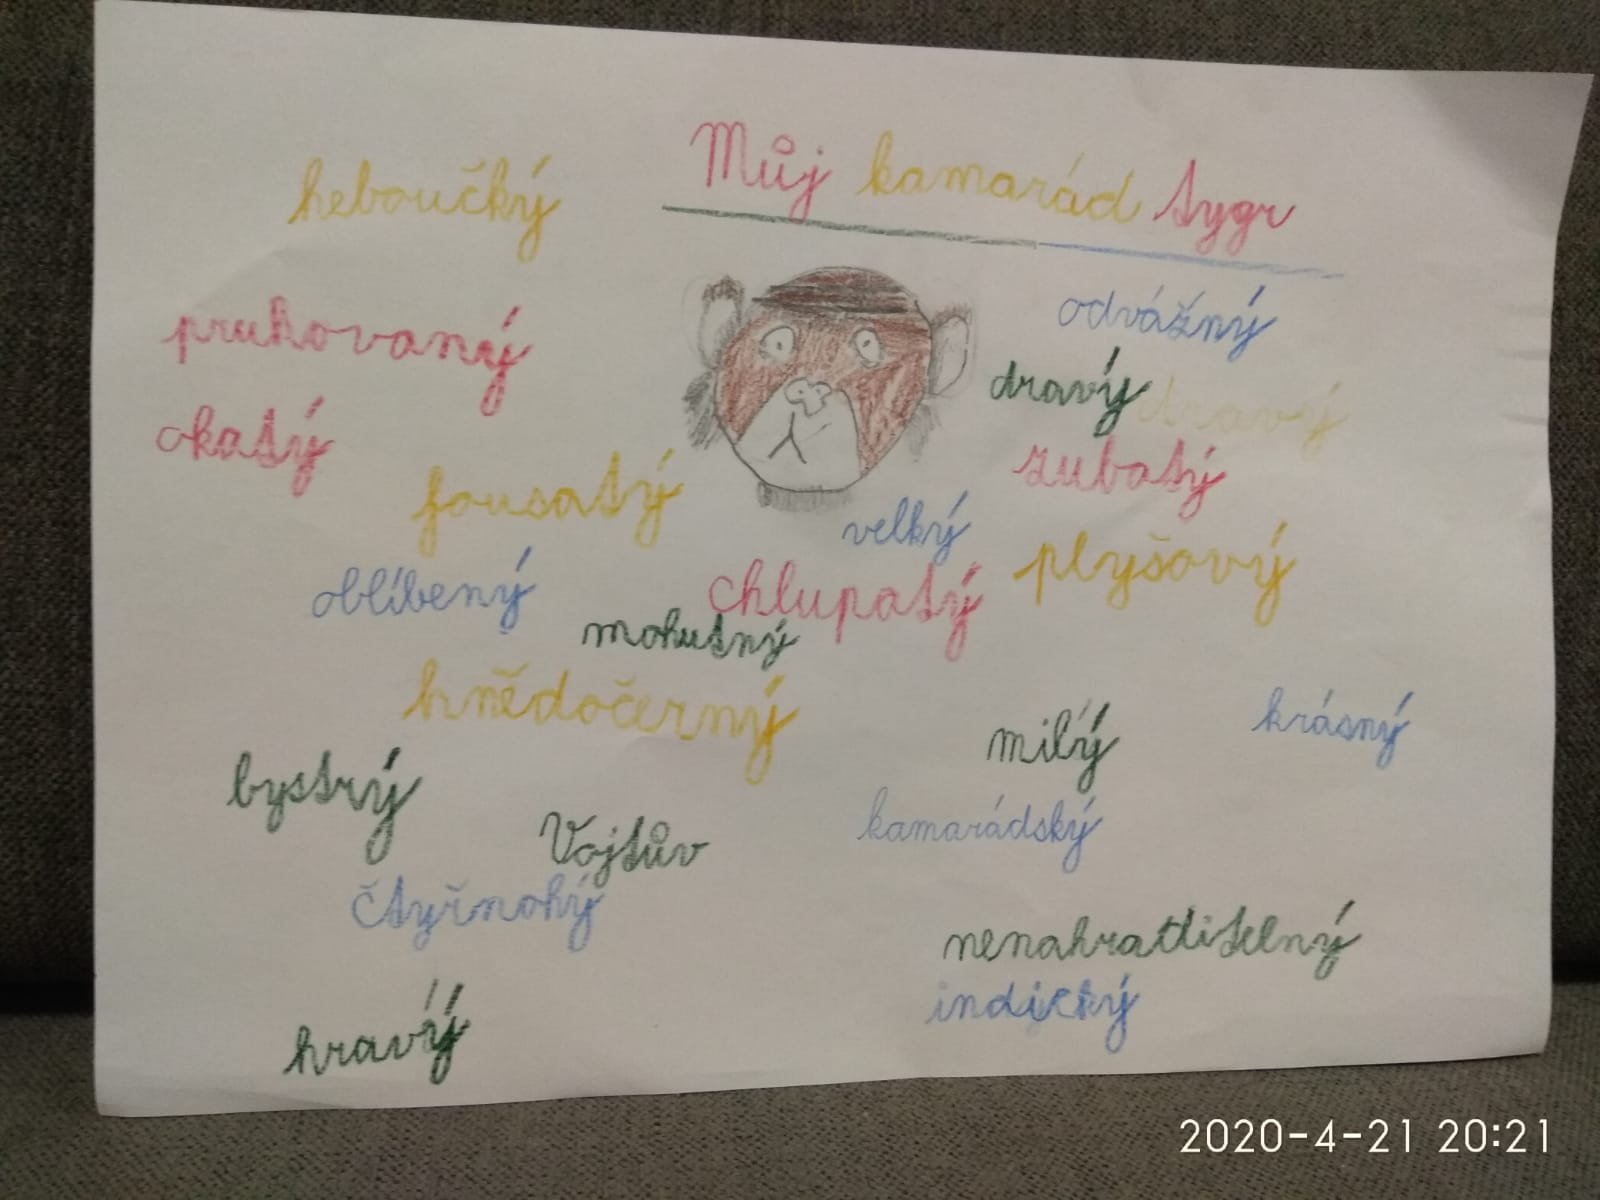 Můj kamarád tygr
heboučký
pruhovaný
odvážný
dravý dravý
okatý
zubatý
fousatý
velký
plyšový
oblíbený
chlupatý
mohutný
hnědočerný
milý
krásný
bystrý
kamarádský
Vojtův
čtyřnohý
nenahraditelný
indický
hravý
2020-4-21 20:21